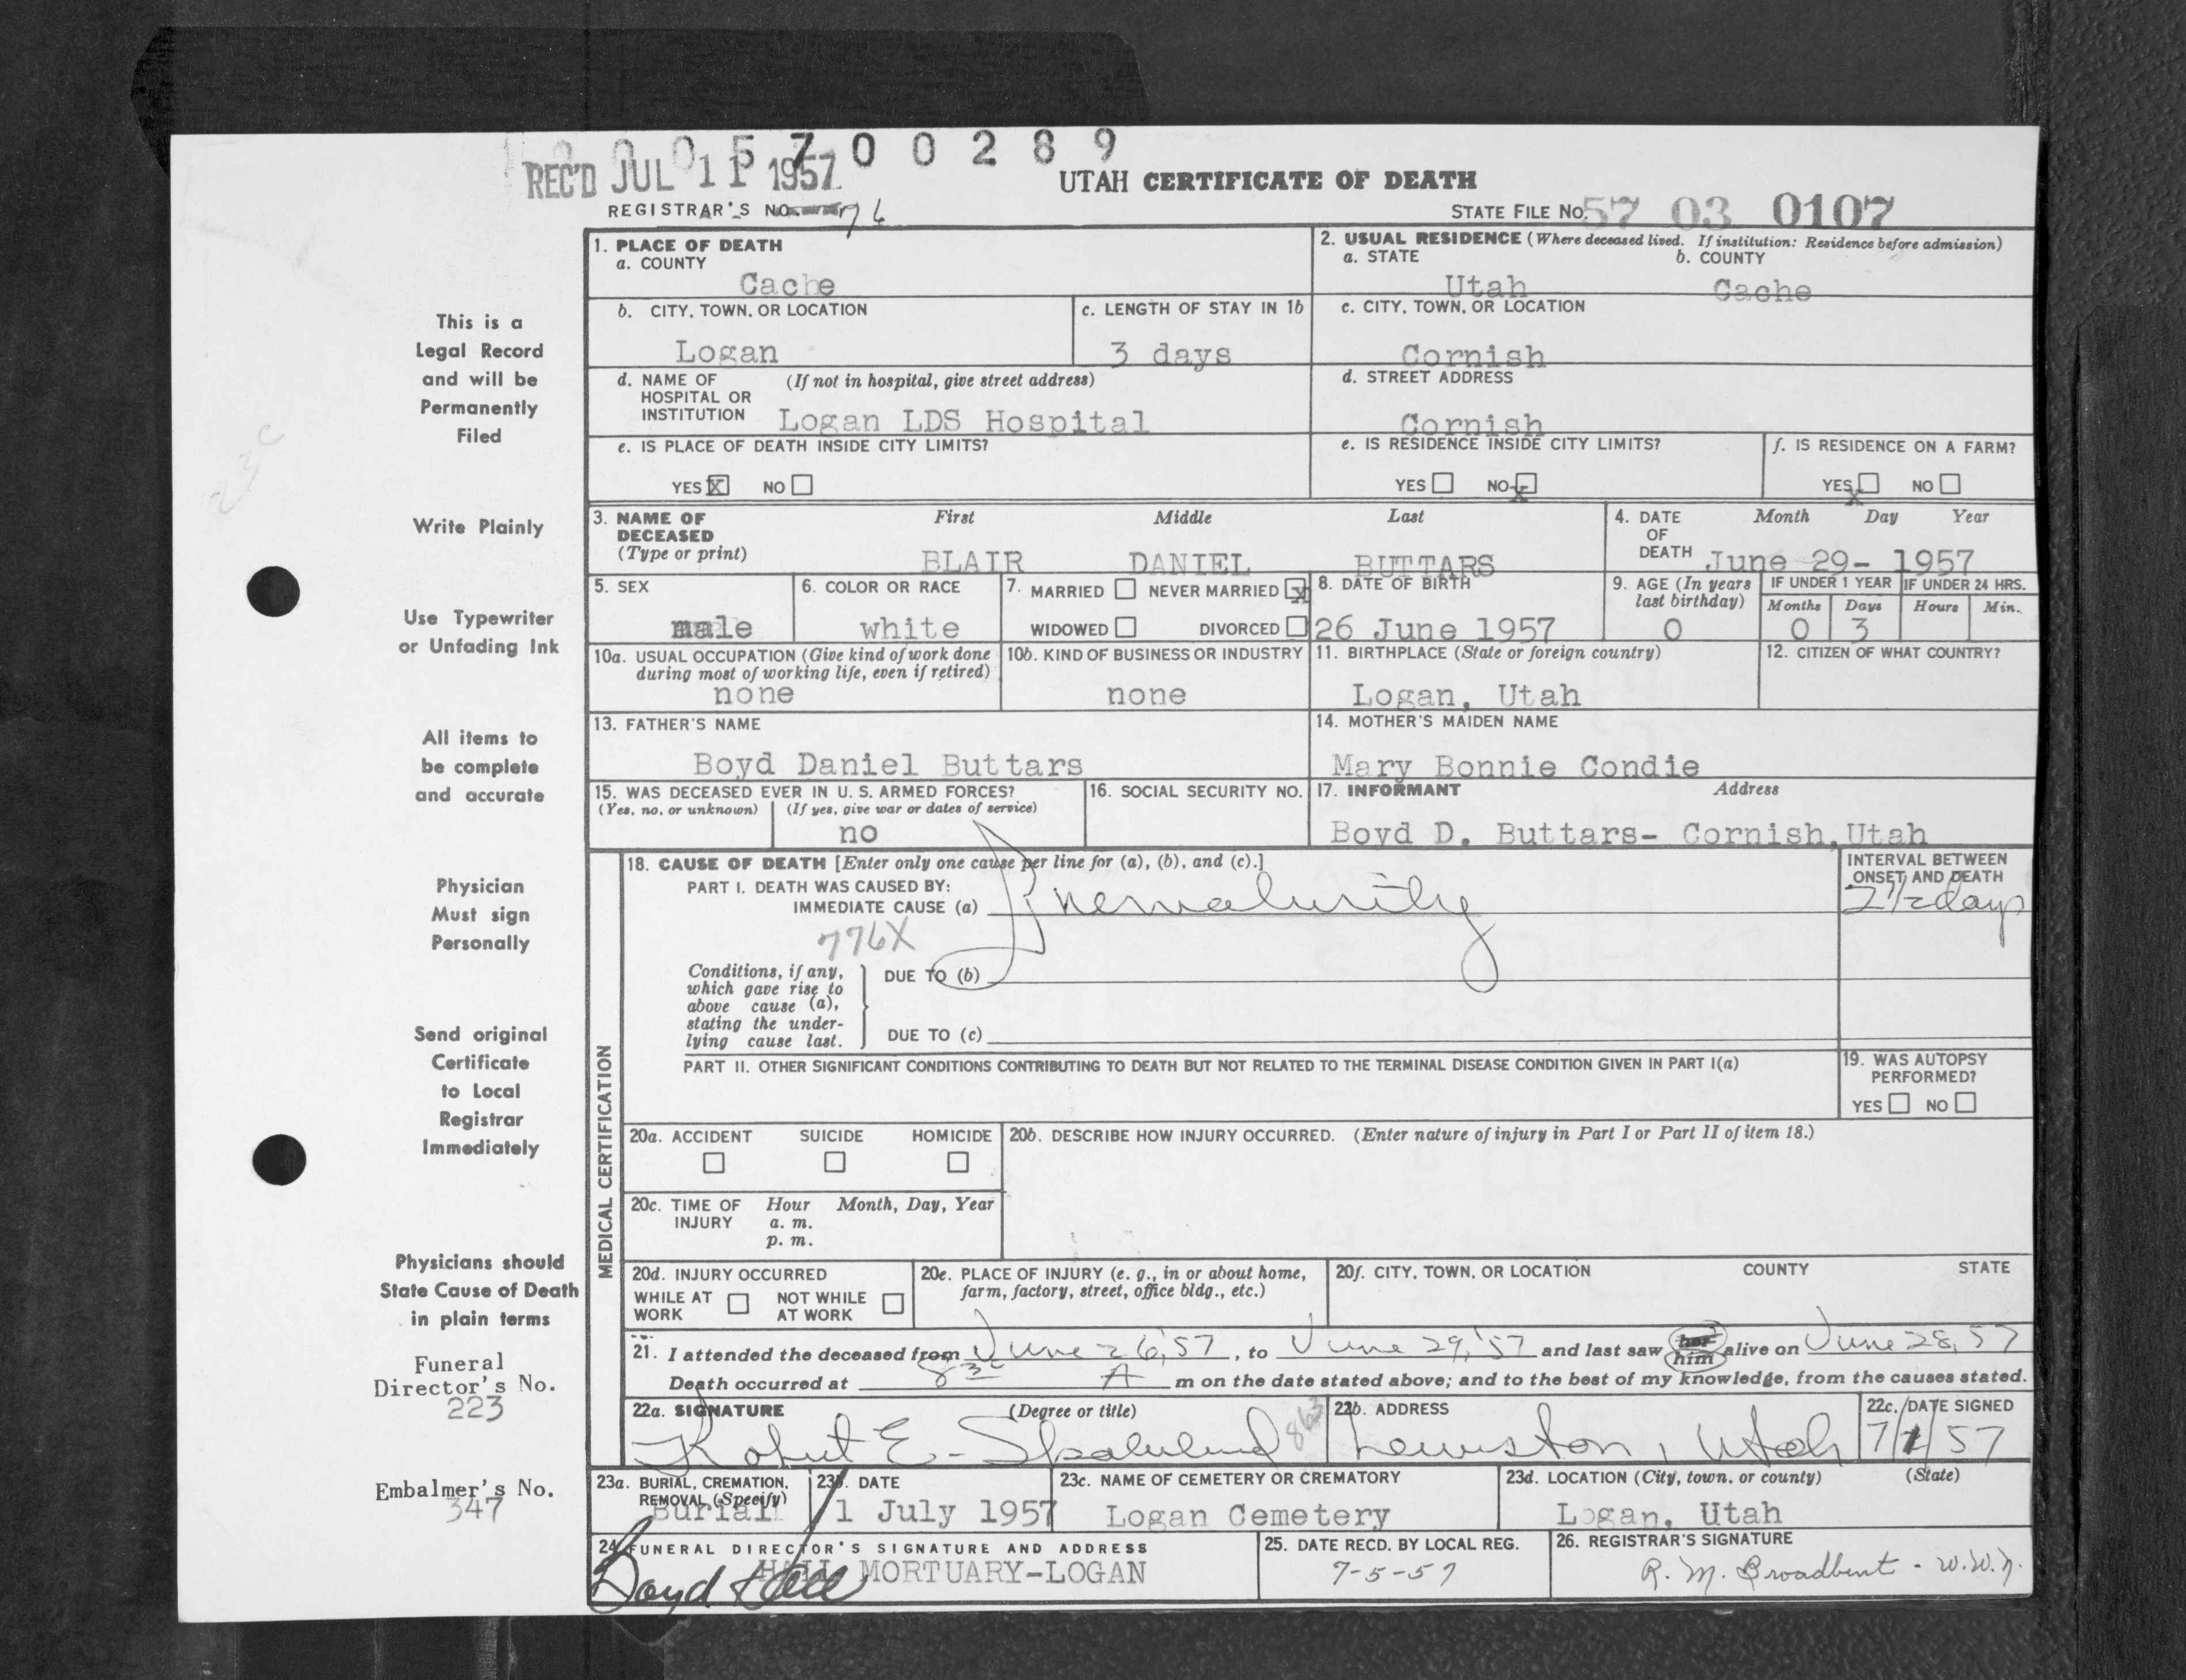 0 0 5 7 0 0 2 8 9
REC'D JUL 11 1957
UTAH CERTIFICATE OF DEATH
REGISTRAR'S NO. 76
STATE FILE NO. 57 03 0107
This is a
Legal Record
and will be
Permanently
Filed
Write Plainly
Use Typewriter
or Unfading Ink
All items to
be complete
and accurate
Physician
Must sign
Personally
Send original
Certificate
to Local
Registrar
Immediately
Physicians should
State Cause of Death
in plain terms
Funeral
Director's No.
223
Embalmer's No.
347
1. PLACE OF DEATH
a. COUNTY
Cache
2. USUAL RESIDENCE (Where deceased lived. If institution: Residence before admission)
a. STATE b. COUNTY
Utah Cache
b. CITY, TOWN, OR LOCATION
Logan
c. LENGTH OF STAY IN 1b
3 days
c. CITY, TOWN, OR LOCATION
Cornish
d. NAME OF (If not in hospital, give street address)
HOSPITAL OR
INSTITUTION Logan LDS Hospital
d. STREET ADDRESS
Cornish
e. IS PLACE OF DEATH INSIDE CITY LIMITS?
YES X NO
e. IS RESIDENCE INSIDE CITY LIMITS?
YES NO X
f. IS RESIDENCE ON A FARM?
YES X NO
3. NAME OF First Middle Last
DECEASED
(Type or print)
BLAIR DANIEL BUTTARS
4. DATE Month Day Year
OF
DEATH June 29- 1957
5. SEX
male
6. COLOR OR RACE
white
7. MARRIED NEVER MARRIED X
WIDOWED DIVORCED
8. DATE OF BIRTH
26 June 1957
9. AGE (In years
last birthday)
0
IF UNDER 1 YEAR IF UNDER 24 HRS.
Months Days Hours Min.
0 3
10a. USUAL OCCUPATION (Give kind of work done
during most of working life, even if retired)
none
10b. KIND OF BUSINESS OR INDUSTRY
none
11. BIRTHPLACE (State or foreign country)
Logan, Utah
12. CITIZEN OF WHAT COUNTRY?
13. FATHER'S NAME
Boyd Daniel Buttars
14. MOTHER'S MAIDEN NAME
Mary Bonnie Condie
15. WAS DECEASED EVER IN U. S. ARMED FORCES?
(Yes, no, or unknown) (If yes, give war or dates of service)
no
16. SOCIAL SECURITY NO.
17. INFORMANT Address
Boyd D. Buttars- Cornish, Utah
MEDICAL CERTIFICATION
18. CAUSE OF DEATH [Enter only one cause per line for (a), (b), and (c).]
PART I. DEATH WAS CAUSED BY:
IMMEDIATE CAUSE (a) Prematurity
776X
INTERVAL BETWEEN
ONSET AND DEATH
2 1/2 days
Conditions, if any,
which gave rise to
above cause (a),
stating the under-
lying cause last.
DUE TO (b)
DUE TO (c)
PART II. OTHER SIGNIFICANT CONDITIONS CONTRIBUTING TO DEATH BUT NOT RELATED TO THE TERMINAL DISEASE CONDITION GIVEN IN PART I(a)
19. WAS AUTOPSY
PERFORMED?
YES NO
20a. ACCIDENT SUICIDE HOMICIDE
20b. DESCRIBE HOW INJURY OCCURRED. (Enter nature of injury in Part I or Part II of item 18.)
20c. TIME OF Hour Month, Day, Year
INJURY a. m.
p. m.
20d. INJURY OCCURRED
WHILE AT NOT WHILE
WORK AT WORK
20e. PLACE OF INJURY (e. g., in or about home,
farm, factory, street, office bldg., etc.)
20f. CITY, TOWN, OR LOCATION COUNTY STATE
21. I attended the deceased from June 26, '57, to June 29, '57 and last saw her him alive on June 28, 57
Death occurred at 8 30 A m on the date stated above; and to the best of my knowledge, from the causes stated.
22a. SIGNATURE (Degree or title)
Robert E. 863
22b. ADDRESS
Lewiston, Utah
22c. DATE SIGNED
7/1/57
23a. BURIAL, CREMATION,
REMOVAL (Specify)
Burial
23b. DATE
1 July 1957
23c. NAME OF CEMETERY OR CREMATORY
Logan Cemetery
23d. LOCATION (City, town, or county) (State)
Logan, Utah
24. FUNERAL DIRECTOR'S SIGNATURE AND ADDRESS
HALL MORTUARY-LOGAN
Boyd Hall
25. DATE RECD. BY LOCAL REG.
7-5-57
26. REGISTRAR'S SIGNATURE
R. M. Broadbent - W.W.N.